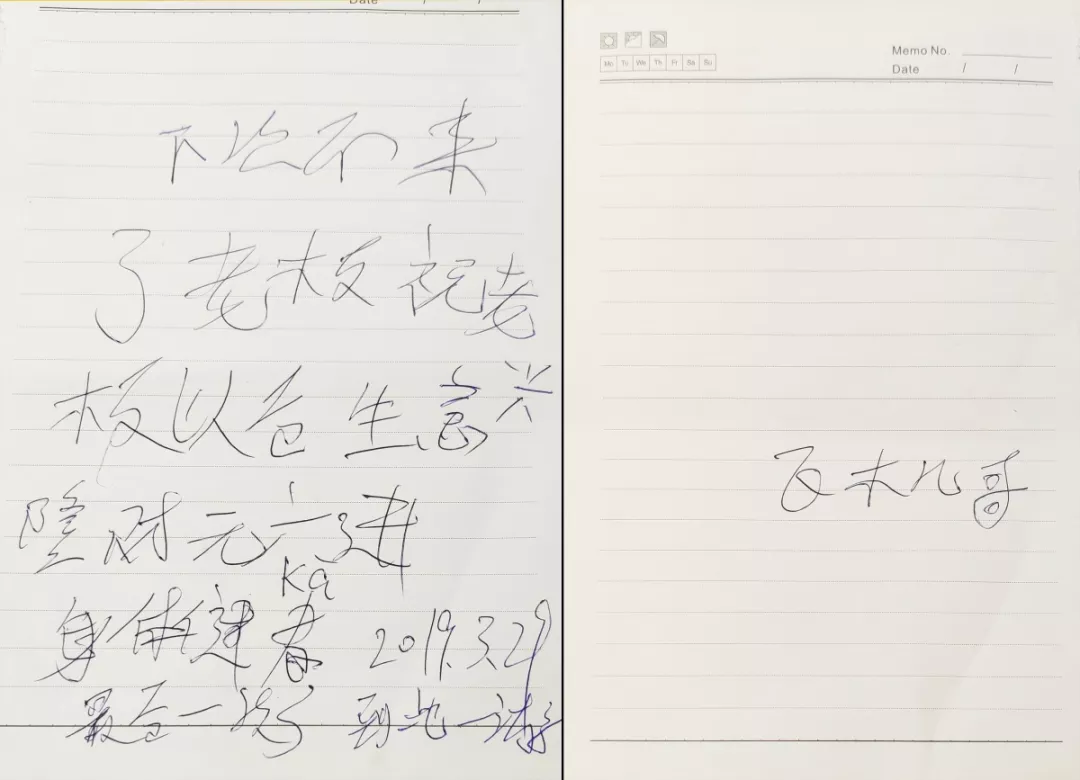 Date / /
下次不来
了老板祝老
板以后生意兴
隆财元广进
kā
身体健春 2019.3.29
最后一次了 到此一游
Mo Tu We Th Fr Sa Su
Memo No.
Date / /
瓦木几哥